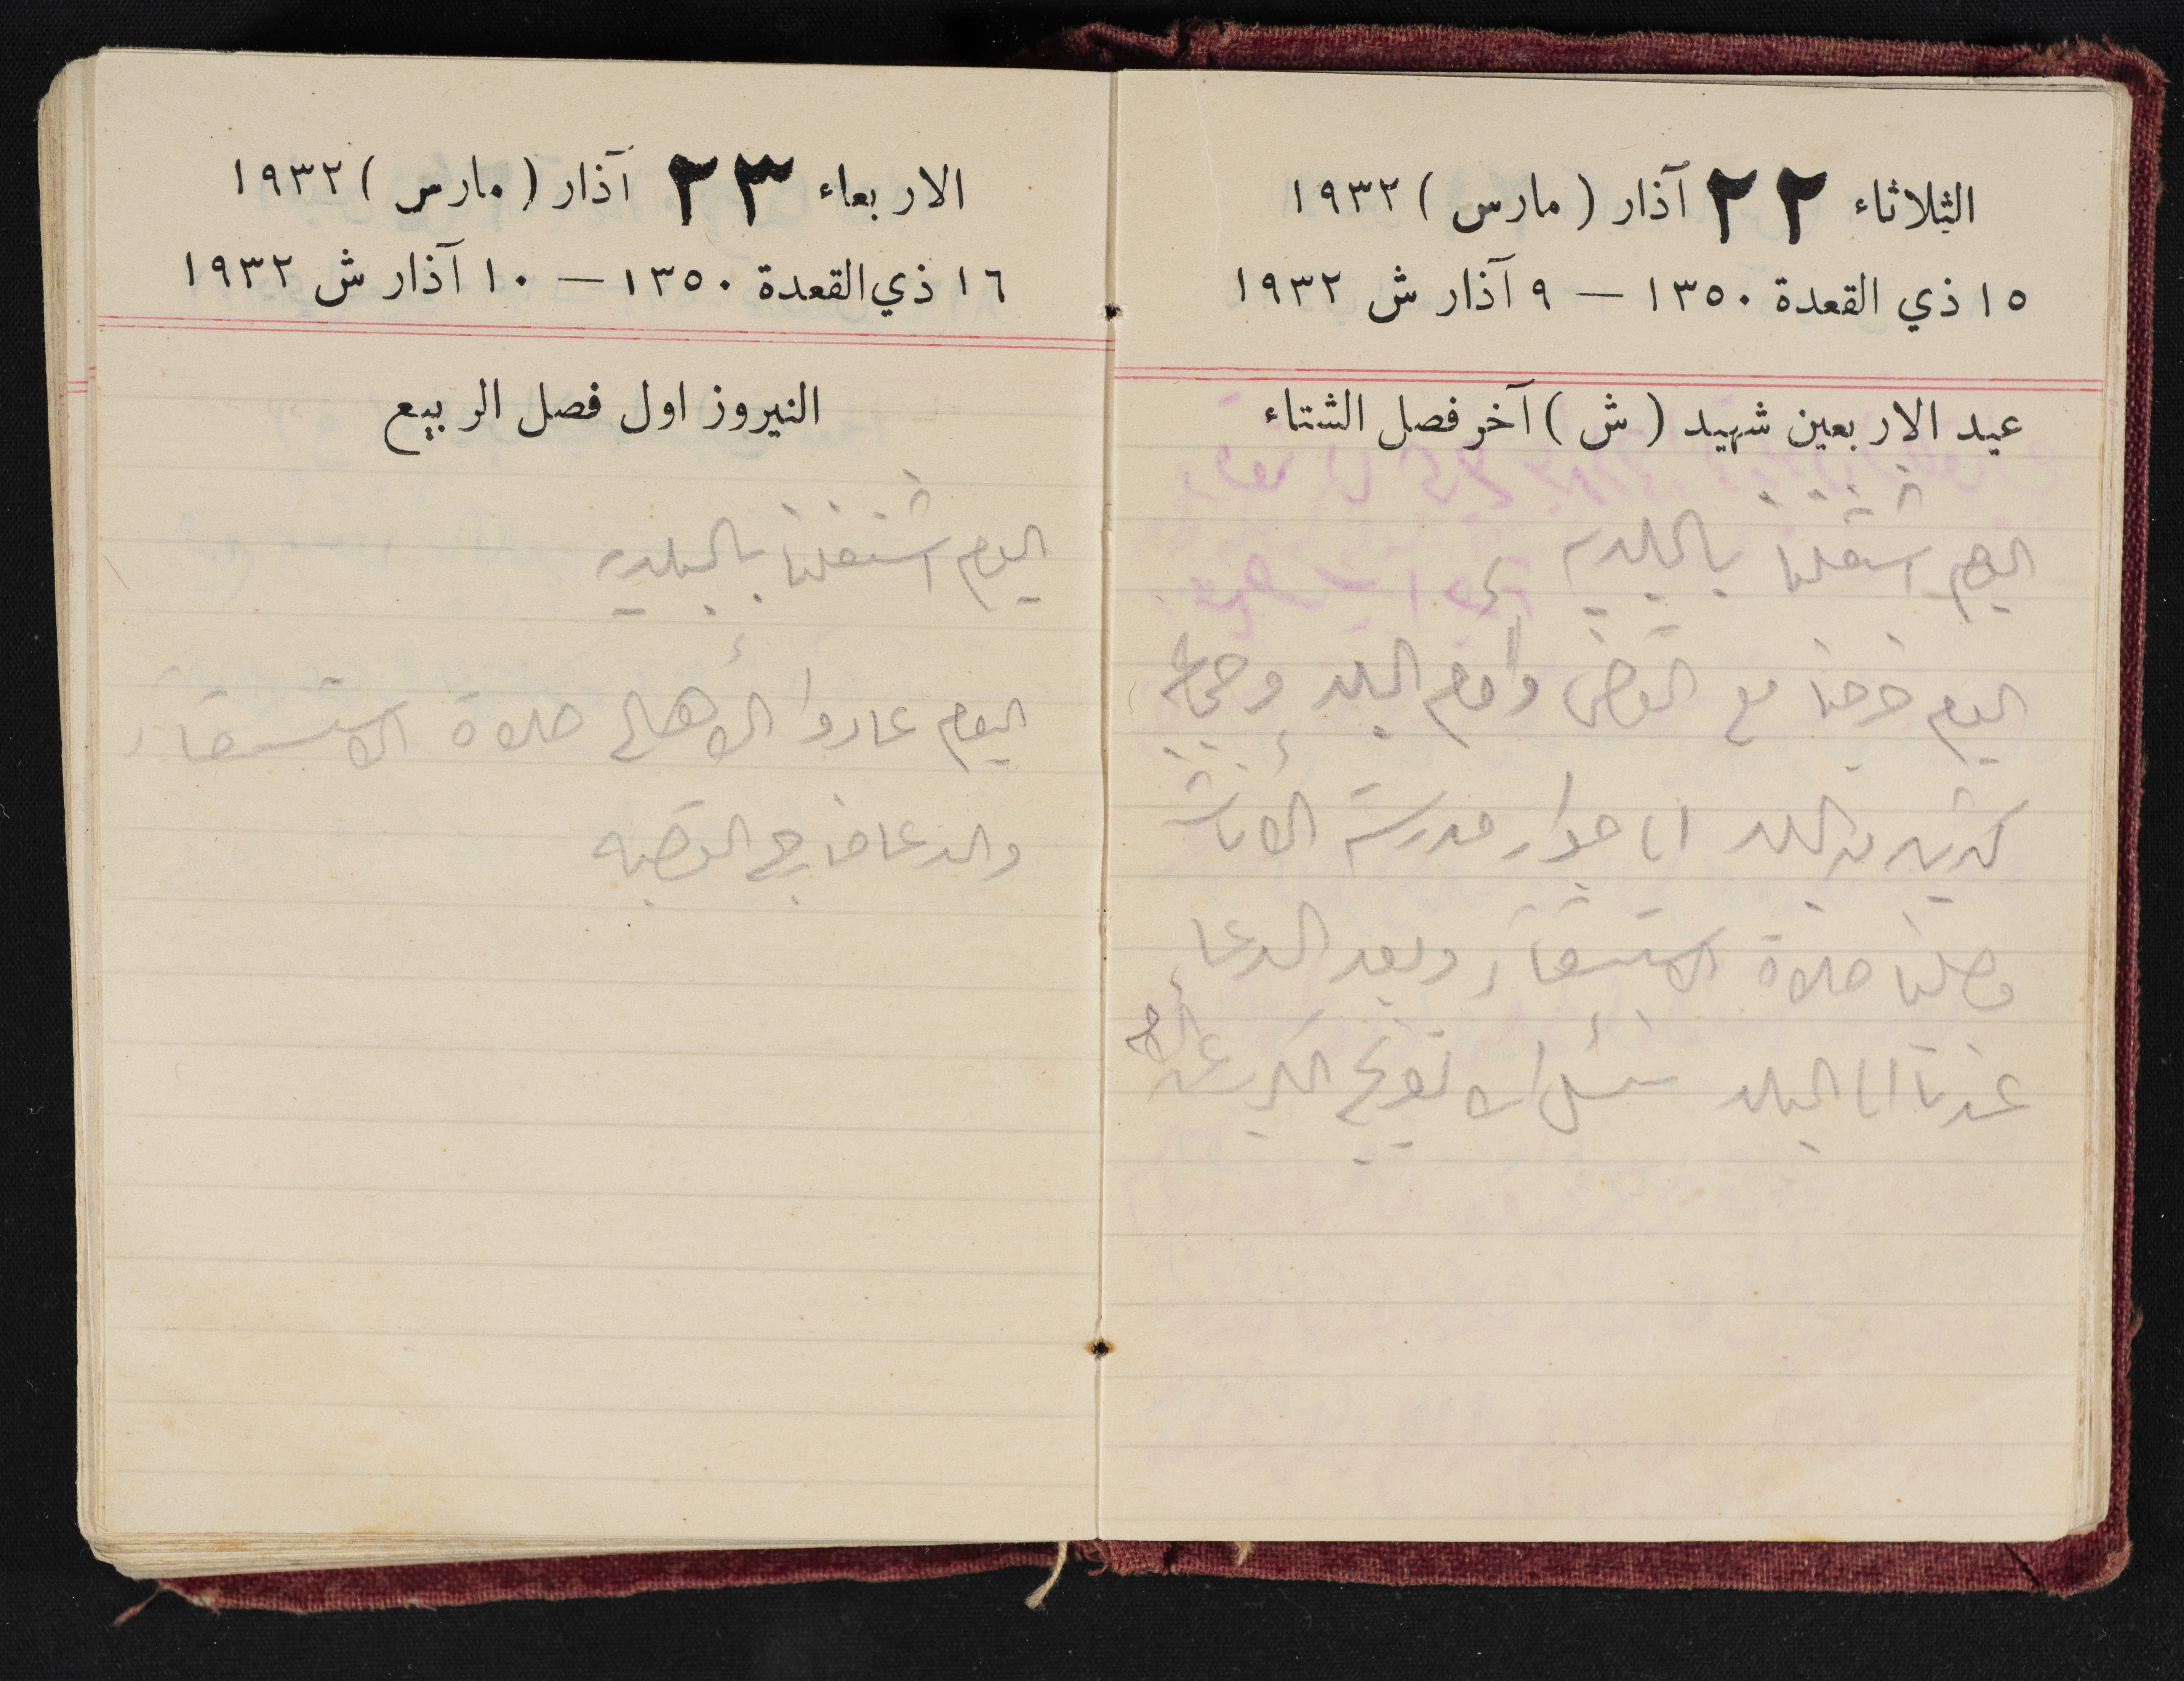 الثلاثاء ٢٢ آذار ( مارس ) ١٩٣٢
١٥ ذي القعدة ١٣٥٠ — ٩ آذار ش ١٩٣٢
عيد الاربعين شهيد ( ش ) آخر فصل الشتاء
اليوم اشتغلنا بالبلديه
اليوم خرجنا مع القاضي وامام البلد وجماعه
كثيرين من البلد الى جوار مدرسة الاناث
وصلينا صلاة الاستسقاء وبعد الدعا
عدنا الى البلد نسئل الله تفريج الكرب عن الامه
الاربعاء ٢٣ آذار ( مارس ) ١٩٣٢
١٦ ذي القعدة ١٣٥٠ — ١٠ آذار ش ١٩٣٢
النيروز اول فصل الربيع
اليوم اشتغلنا بالبلديه
اليوم عادوا الأهالي صلاة الاستسقاء
والدعا خارج القصبه